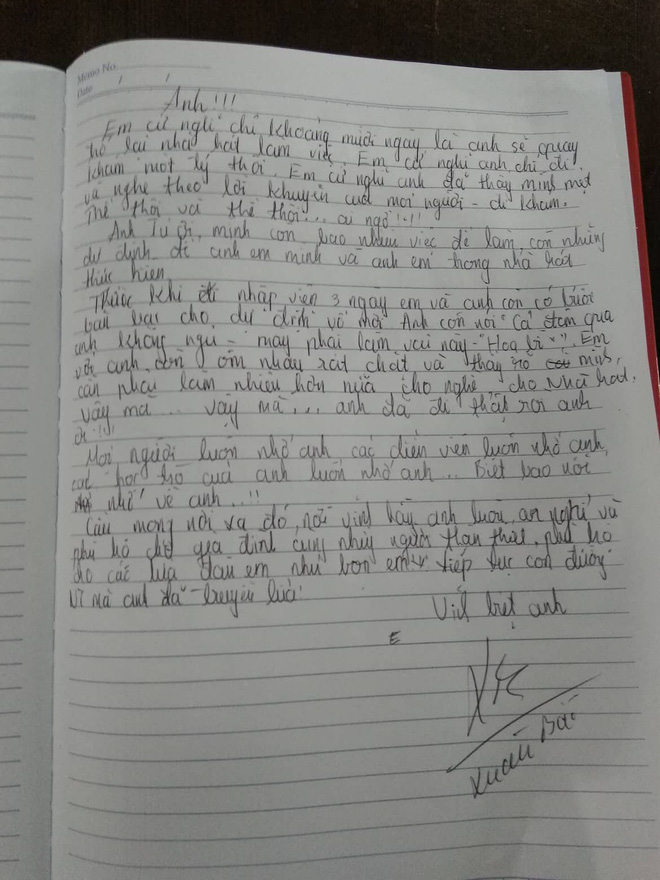 Memo No.
Date / /
Anh!!!
Em cứ nghĩ chỉ khoảng mười ngày là anh sẽ quay
trở lại nhà hát làm việc. Em cứ nghĩ anh chỉ đi
khám một tý thôi. Em cứ nghĩ anh đã thấy mình mệt
và nghe theo lời khuyên của mọi người - đi khám.
Thế thôi và thế thôi... ai ngờ!!!
Anh Tú ơi, mình còn bao nhiêu việc để làm, còn những
dự định để anh em mình và anh em trong nhà hát
thực hiện.
Trước khi đi nhập viện 3 ngày em và anh còn có buổi
bàn bạc cho dự định vở mới. Anh còn nói "Cả đêm qua
anh không ngủ - mày phải làm vai này - "
với anh còn ôm nhau rất chặt và thấy rõ mình
cần phải làm nhiều hơn nữa cho nghề, cho Nhà hát,
vậy mà... vậy mà... anh đã đi thật rồi anh
ơi!!!
Mọi người luôn nhớ anh các diễn viên luôn nhớ anh,
các học trò của anh luôn nhớ anh... Biết bao nỗi
nhớ về anh..!!
Cầu mong nơi xa đó, nơi vĩnh hằng anh luôn an nghỉ và
phù hộ cho gia đình cùng những người thân thật, phù hộ
cho các lứa đàn em như bọn em tiếp tục con đường
Vì mà anh đã truyền lửa.
Vĩnh biệt anh
E
Xuân Bắc